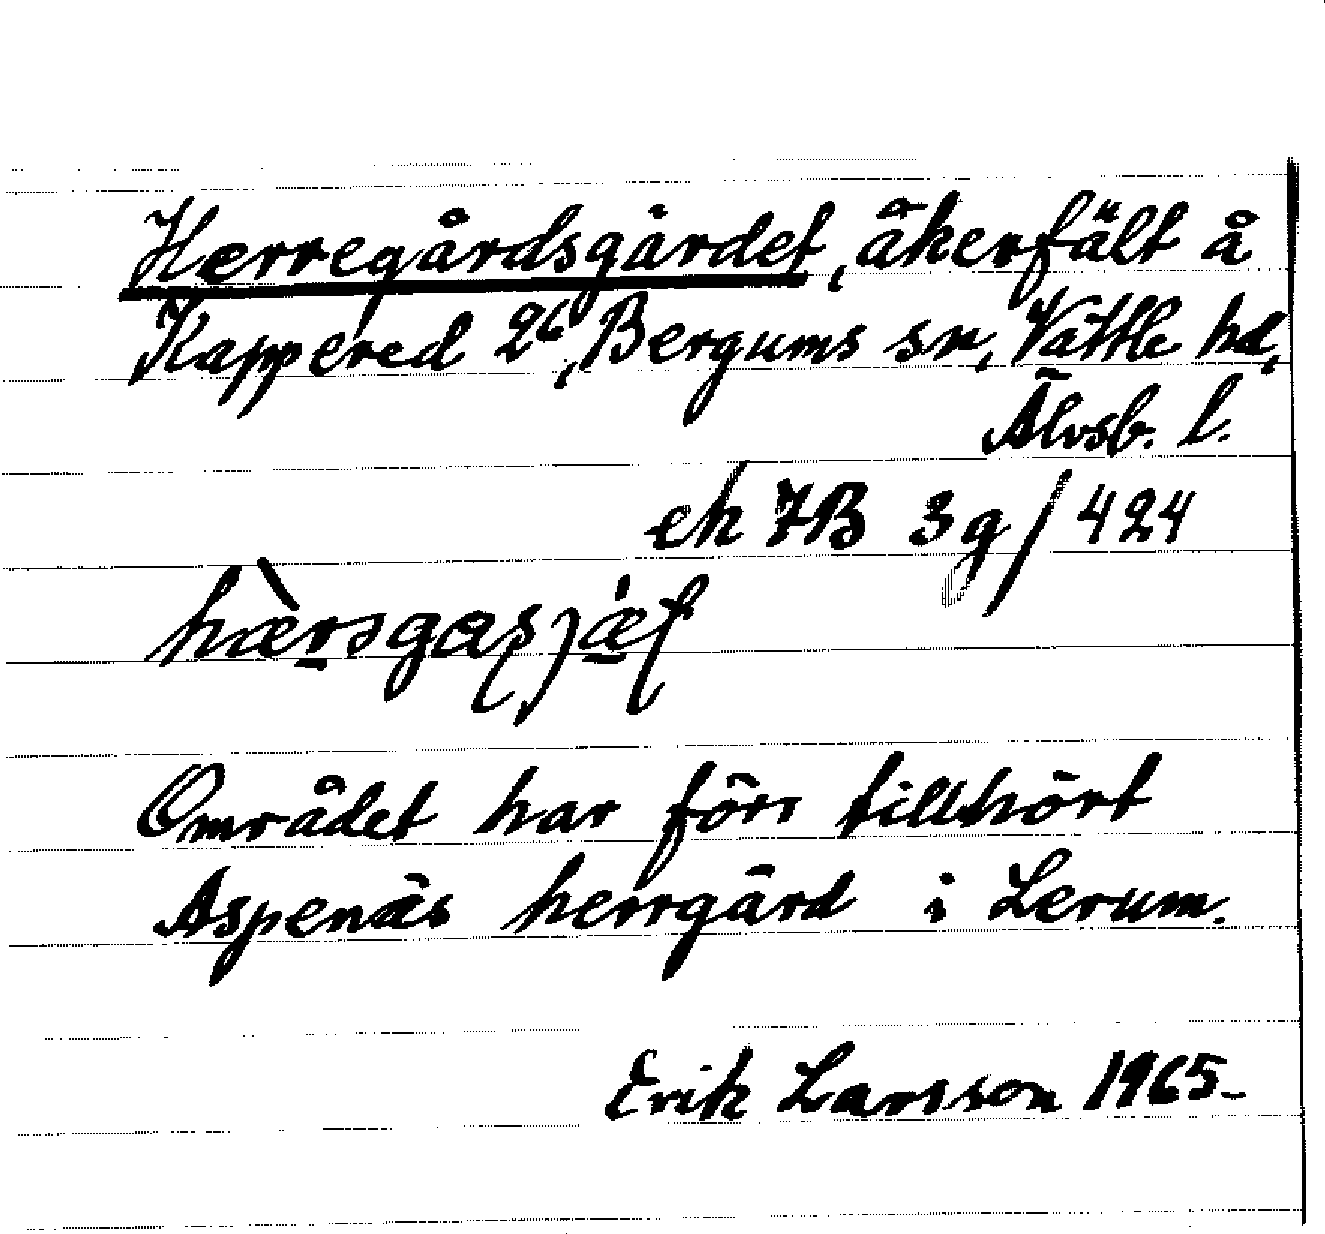 Herregårdsgärdet, åkerfält å
Kappered 2⁶, Bergums sn, Vättle hd,
Älvsb. l.
ek 7B 3g/424
Området har förr tillhört
Aspenäs herrgård i Lerum.
Erik Larsson 1965-